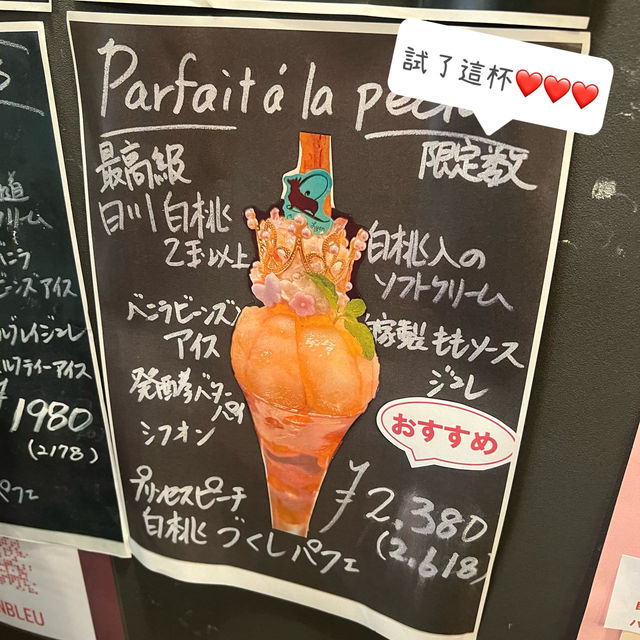 試了這杯❤️❤️❤️
Parfait á la
最高級
限定数
白川白桃
2玉以上
白桃入の
ソフトクリーム
バニラビーンズ
アイス
自家製ももソース
ジュレ
発酵バター
パイ
シフォン
おすすめ
プリンセスピーチ
白桃づくしパフェ
¥2.380
(2.618)
クリーム
バニラ
ビーンズアイス
ミルクティーアイス
¥1980
(2178)
パフェ
NBLEU